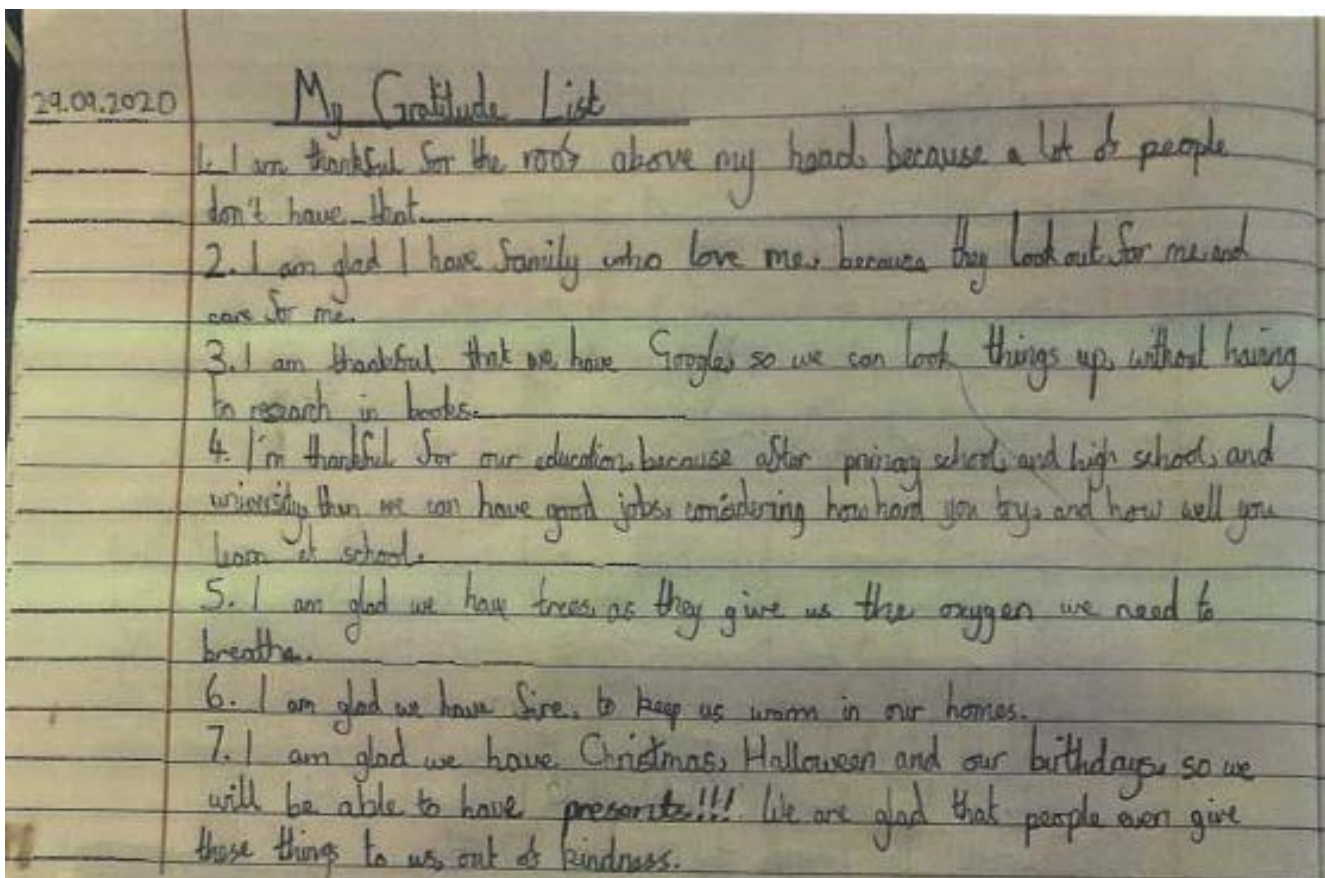 29.09.2020 My Gratitude List
1. I am thankful for the roof above my head, because a lot of people
don't have that.
2. I am glad I have family who love me, because they look out for me, and
care for me.
3. I am thankful that we have Google, so we can look things up, without having
to research in books.
4. I'm thankful for our education, because after primary school, and high school, and
university, then we can have good jobs, considering how hard you try, and how well you
learn at school.
5. I am glad we have trees, as they give us the oxygen we need to
breathe.
6. I am glad we have fire, to keep us warm in our homes.
7. I am glad we have Christmas, Halloween and our birthdays, so we
will be able to have presents!!! We are glad that people even give
these things to us, out of kindness.